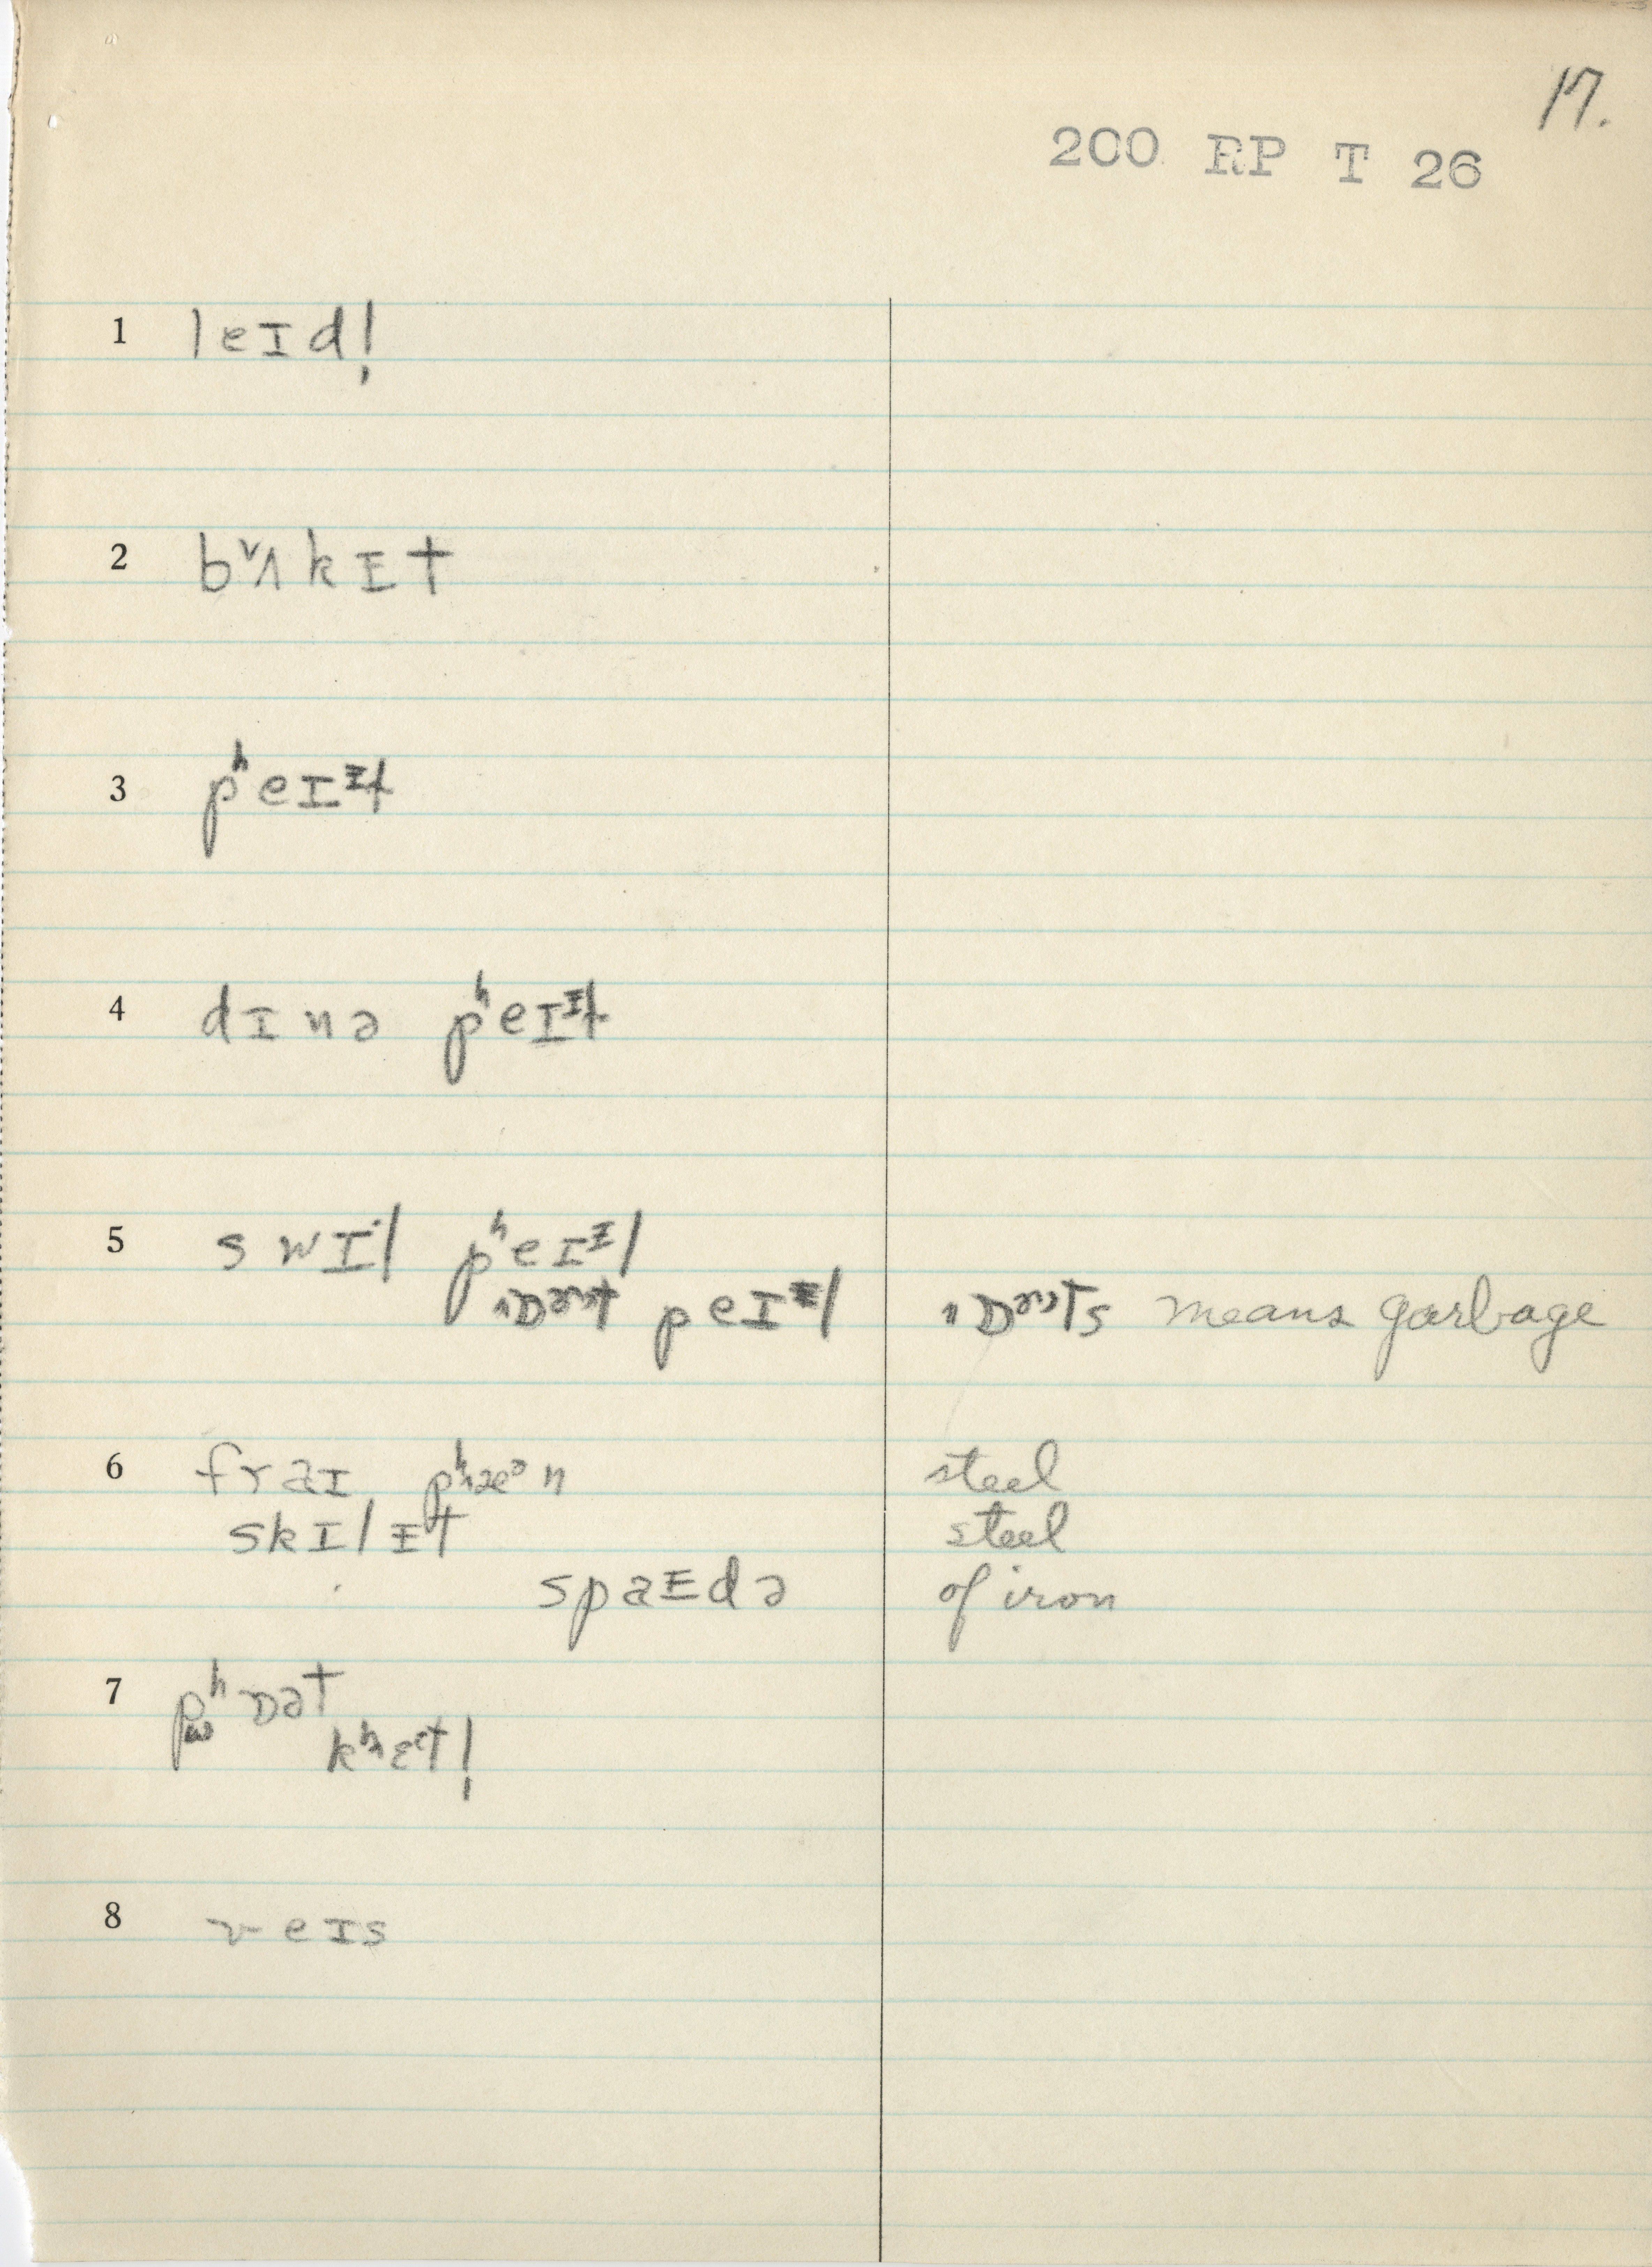 17.
200 RP T 26
1 leɪdl̩
2 bᵛʌkɪt
3 pʰeɪᵻɫ
4 dɪnə pʰeɪᵻɫ
5 swɪˑl pʰeɪᵻl
peɪᵻl means garbage
6 fraɪ pʰæᵊn steel
skɪlᵻt steel
spaᵻdə of iron
7 pʰɒət
kʰɛᵋtl̩
8 veɪs